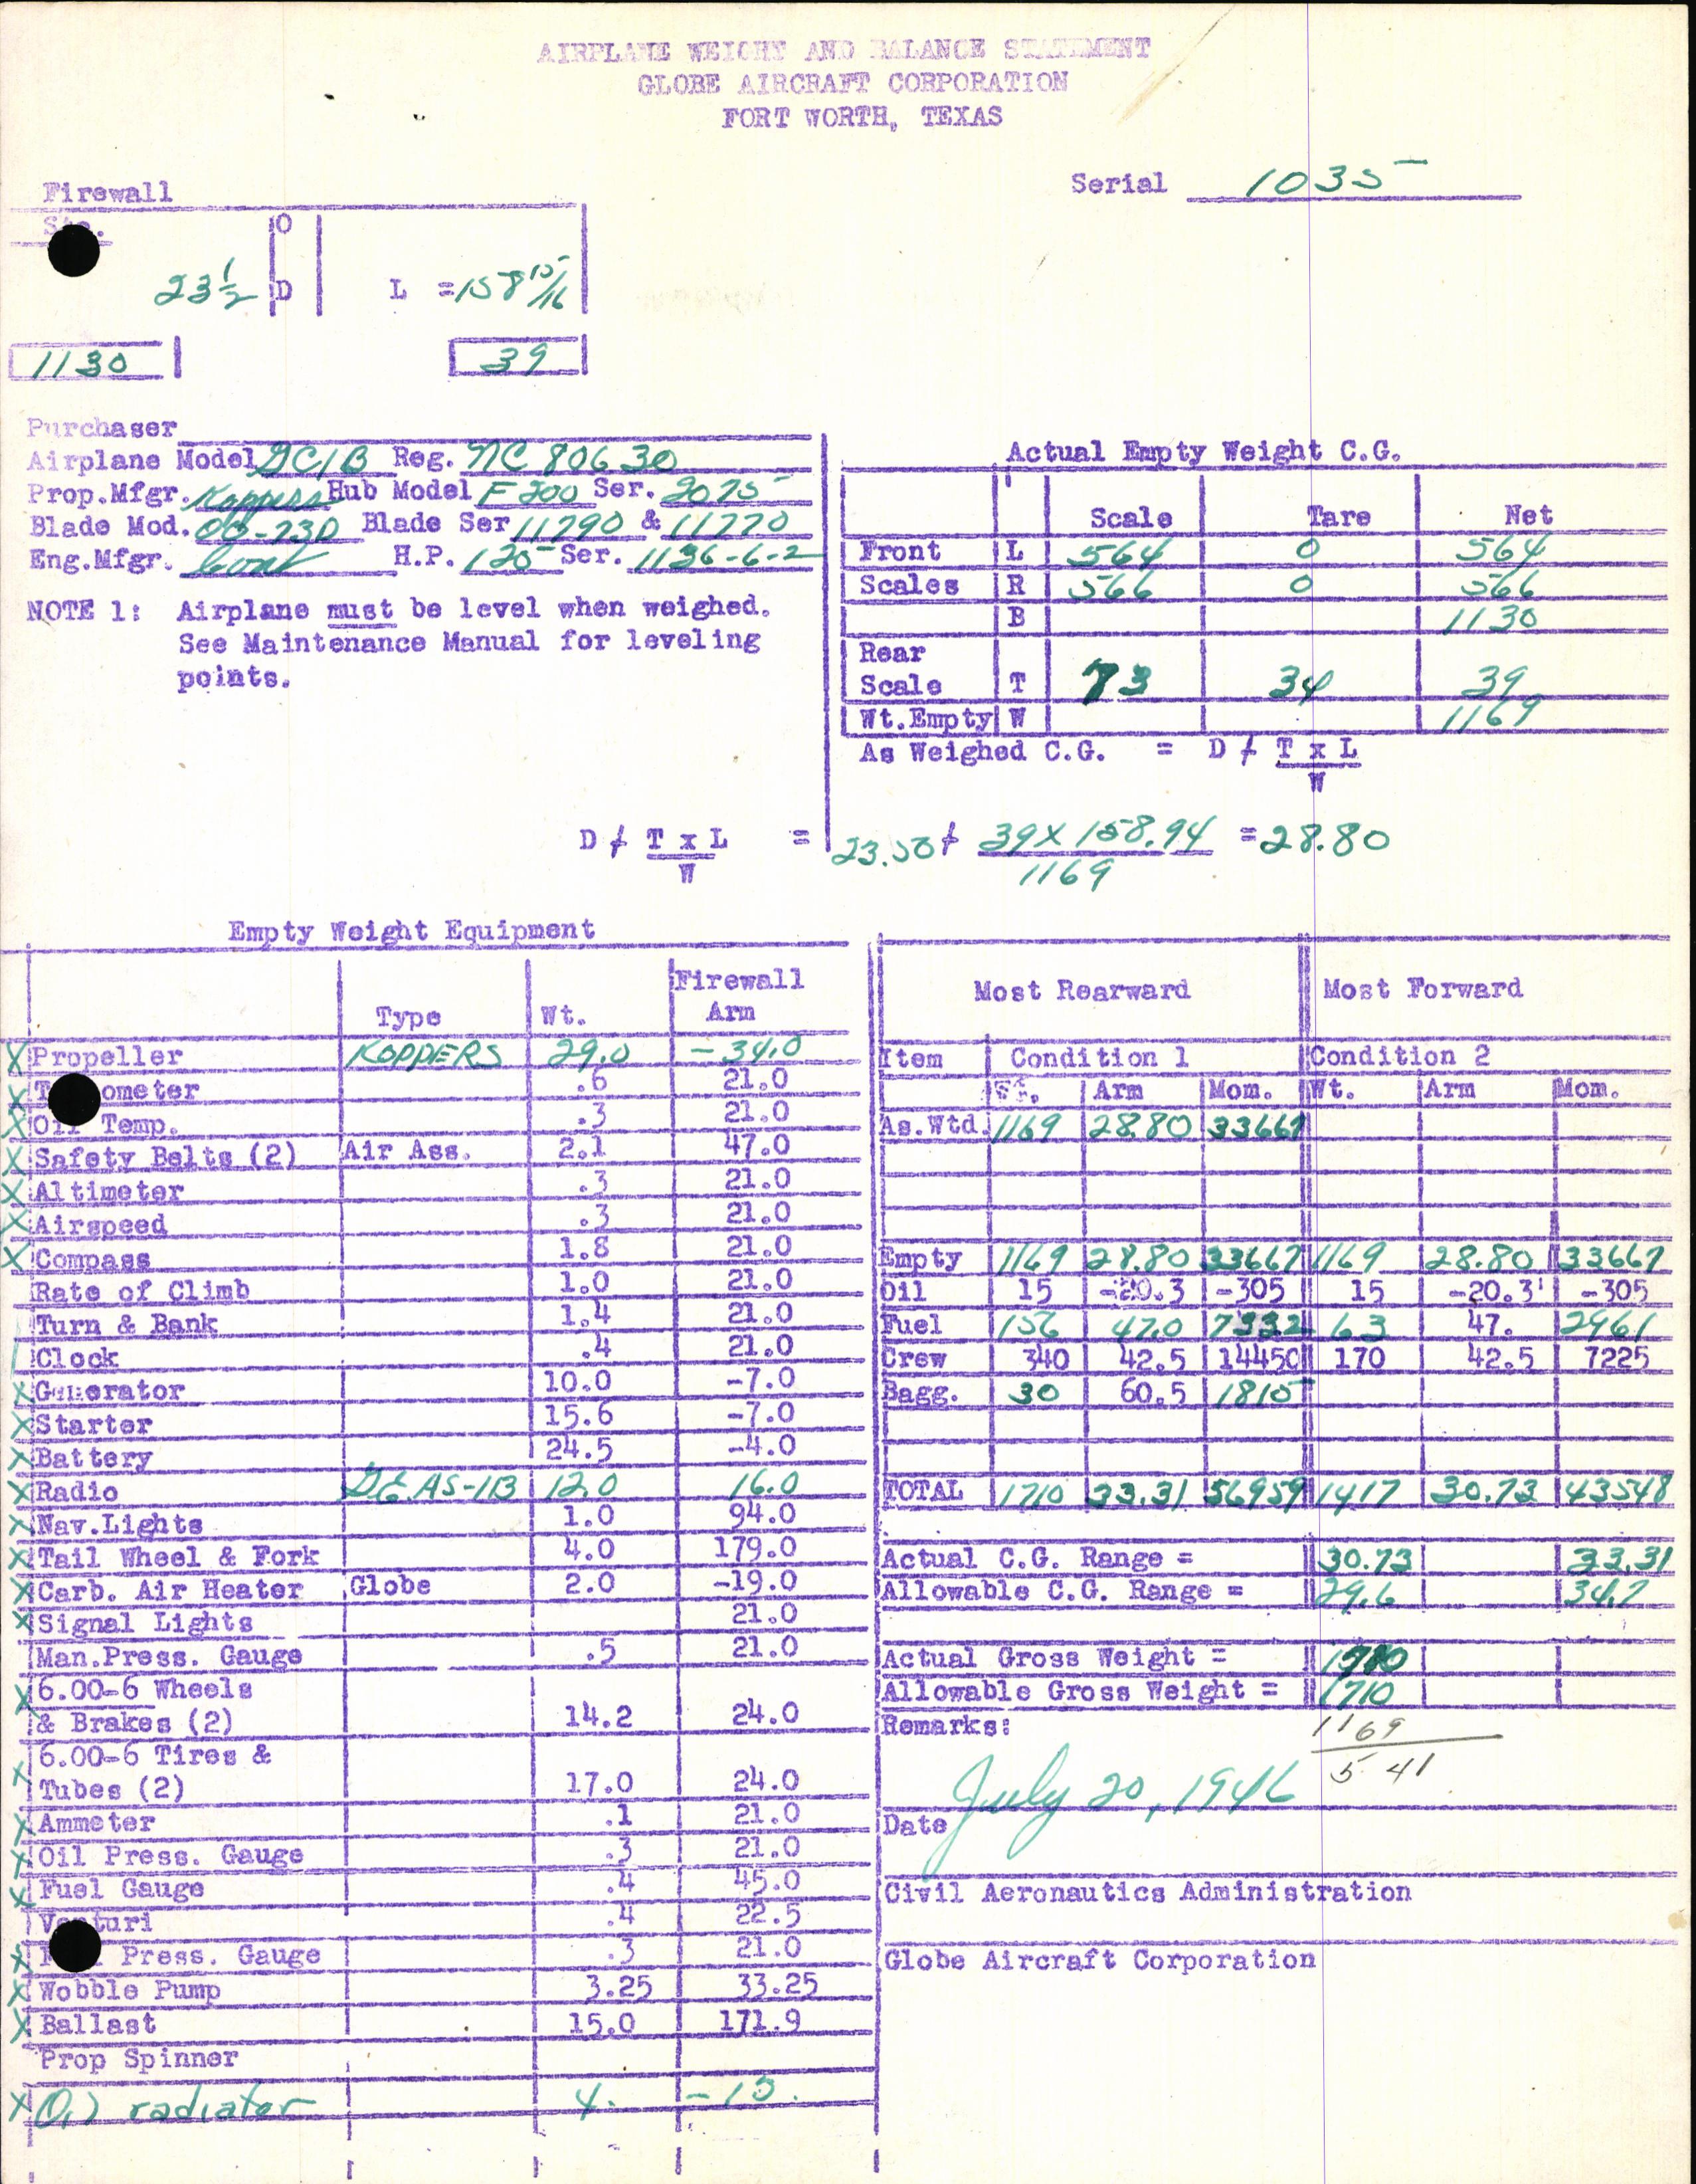 AIRPLANE WEIGHT AND BALANCE STATEMENT
GLOBE AIRCRAFT CORPORATION
FORT WORTH, TEXAS
Serial 1035
Firewall
Sta.
O
23 1/2 D L = 158 15/16
1130 39
Purchaser
Airplane Model GC1B Reg. NC 80630
Prop.Mfgr. Koppers Hub Model F200 Ser. 2075
Blade Mod. 00-73D Blade Ser 11790 & 11770
Eng.Mfgr. Cont H.P. 125 Ser. 1136-6-2
NOTE 1: Airplane must be level when weighed.
See Maintenance Manual for leveling
points.
Actual Empty Weight C.G.
Scale Tare Net
Front L 564 0 564
Scales R 566 0 566
B 1130
Rear
Scale T 73 34 39
Wt.Empty W 1169
As Weighed C.G. = D + T x L
W
D + T x L = 23.50 + 39 X 158.94 = 28.80
W 1169
Empty Weight Equipment
Type Wt. Firewall
Arm
X Propeller KOPPERS 29.0 -34.0
X T ometer .6 21.0
X Oil Temp. .3 21.0
X Safety Belts (2) Air Ass. 2.1 47.0
X Altimeter .3 21.0
X Airspeed .3 21.0
X Compass 1.8 21.0
Rate of Climb 1.0 21.0
Turn & Bank 1.4 21.0
Clock .4 21.0
X Generator 10.0 -7.0
X Starter 15.6 -7.0
X Battery 24.5 -4.0
X Radio G.E. AS-1B 12.0 16.0
X Nav.Lights 1.0 94.0
X Tail Wheel & Fork 4.0 179.0
X Carb. Air Heater Globe 2.0 -19.0
X Signal Lights 21.0
Man.Press. Gauge .5 21.0
X 6.00-6 Wheels
& Brakes (2) 14.2 24.0
X 6.00-6 Tires &
Tubes (2) 17.0 24.0
X Ammeter .1 21.0
X Oil Press. Gauge .3 21.0
X Fuel Gauge .4 45.0
Venturi .4 22.5
X Press. Gauge .3 21.0
X Wobble Pump 3.25 33.25
X Ballast 15.0 171.9
Prop Spinner
X Oil radiator 4. -13.
Most Rearward Most Forward
Item Condition 1 Condition 2
Wt. Arm Mom. Wt. Arm Mom.
As.Wtd. 1169 28.80 33667
Empty 1169 28.80 33667 1169 28.80 33667
Oil 15 -20.3 -305 15 -20.3 -305
Fuel 156 47.0 7332 63 47. 2961
Crew 340 42.5 14450 170 42.5 7225
Bagg. 30 60.5 1815
TOTAL 1710 33.31 56959 1417 30.73 43548
Actual C.G. Range = 30.73 33.31
Allowable C.G. Range = 29.6 34.7
Actual Gross Weight = 1710
Allowable Gross Weight = 1710
Remarks: 1169
541
July 20, 1946
Date
Civil Aeronautics Administration
Globe Aircraft Corporation